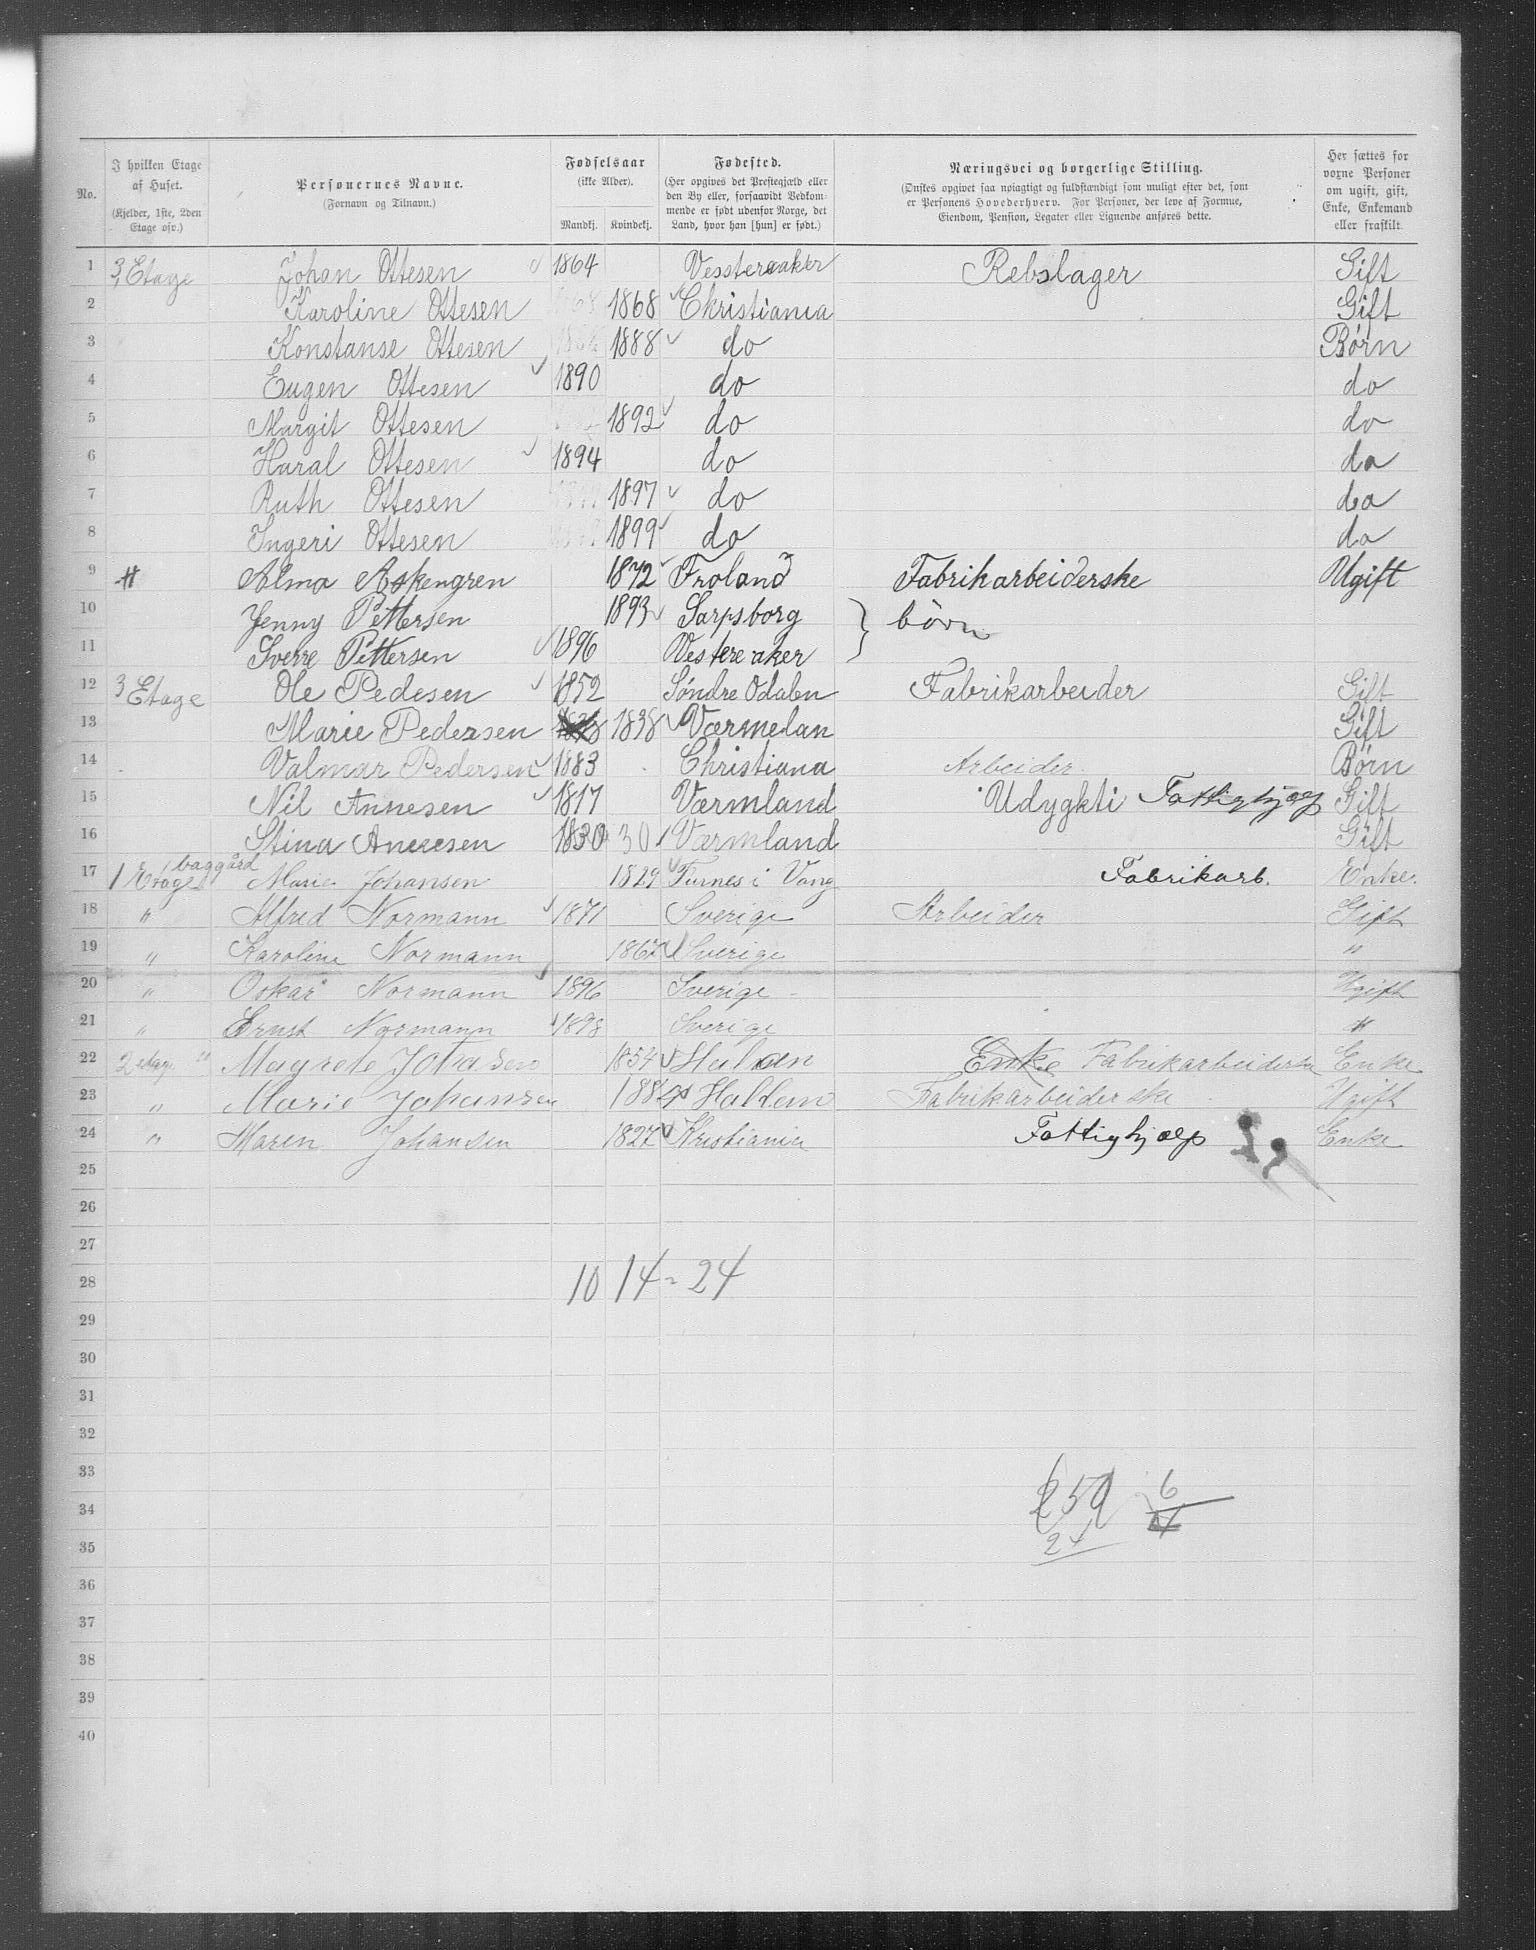 No. I hvilken Etage af Huset. (Kjelder, 1ste, 2den Etage osv.) Personernes Navne. (Fornavn og Tilnavn.) Fødselsaar (ikke Alder). Mandkj. Kvindekj. Fødested. (Her opgives det Prestegjæld eller den By eller, forsaavidt Vedkommende er født udenfor Norge, det Land, hvor han [hun] er født.) Næringsvei og borgerlige Stilling. (Ønskes opgivet saa nøiagtigt og fuldstændigt som muligt efter det, som er Personens Hovederhverv. For Personer, der leve af Formue, Eiendom, Pension, Legater eller Lignende anføres dette.) Her sættes for voxne Personer om ugift, gift, Enke, Enkemand eller fraskilt.
1 3 Etage Johan Ottesen 1864 Vesstereaker Rebslager Gift
2 Karoline Ottesen 1868 Christiania Gift
3 Konstanse Ottesen 1888 do Børn
4 Eugen Ottesen 1890 do do
5 Margit Ottesen 1892 do do
6 Haral Ottesen 1894 do do
7 Ruth Ottesen 1897 do do
8 Ingeri Ottesen 1899 do do
9 " Alma Askengren 1872 Froland Fabrikarbeiderske Ugift
10 Jenny Pettersen 1893 Sarpsborg } børn
11 Sverre Pettersen 1896 Vestere aker
12 3 Etage Ole Pedesen 1852 Søndre Odalen Fabrikarbeider Gift
13 Marie Pedersen 1838 Værmelan Gift
14 Valmar Pedersen 1883 Christiana Arbeider Børn
15 Nil Annesen 1817 Værmland Udygkti Fattighjælp Gift
16 Stina Annesen 1830 30 Værmland Gift
17 1 Etage baggård Marie Johansen 1829 Furnes i Vang Fabrikarb. Enke.
18 " Alfred Normann 1871 Sverige Arbeider Gift
19 " Karoline Normann 1867 Sverige "
20 " Oskar Normann 1896 Sverige Ugift
21 " Ernst Normann 1898 Sverige "
22 2 etage " Magrete Johasen 1854 Halden Enke Fabrikarbeiderske Enke
23 " Marie Johansen 1884 Halden Fabrikarbeiderske Ugift
24 " Maren Johansen 1827 Kristiania Fattighjælp Enke
25
26
27
28 10 14 = 24
29
30
31
32
33
34 259 6
35 24
36
37
38
39
40